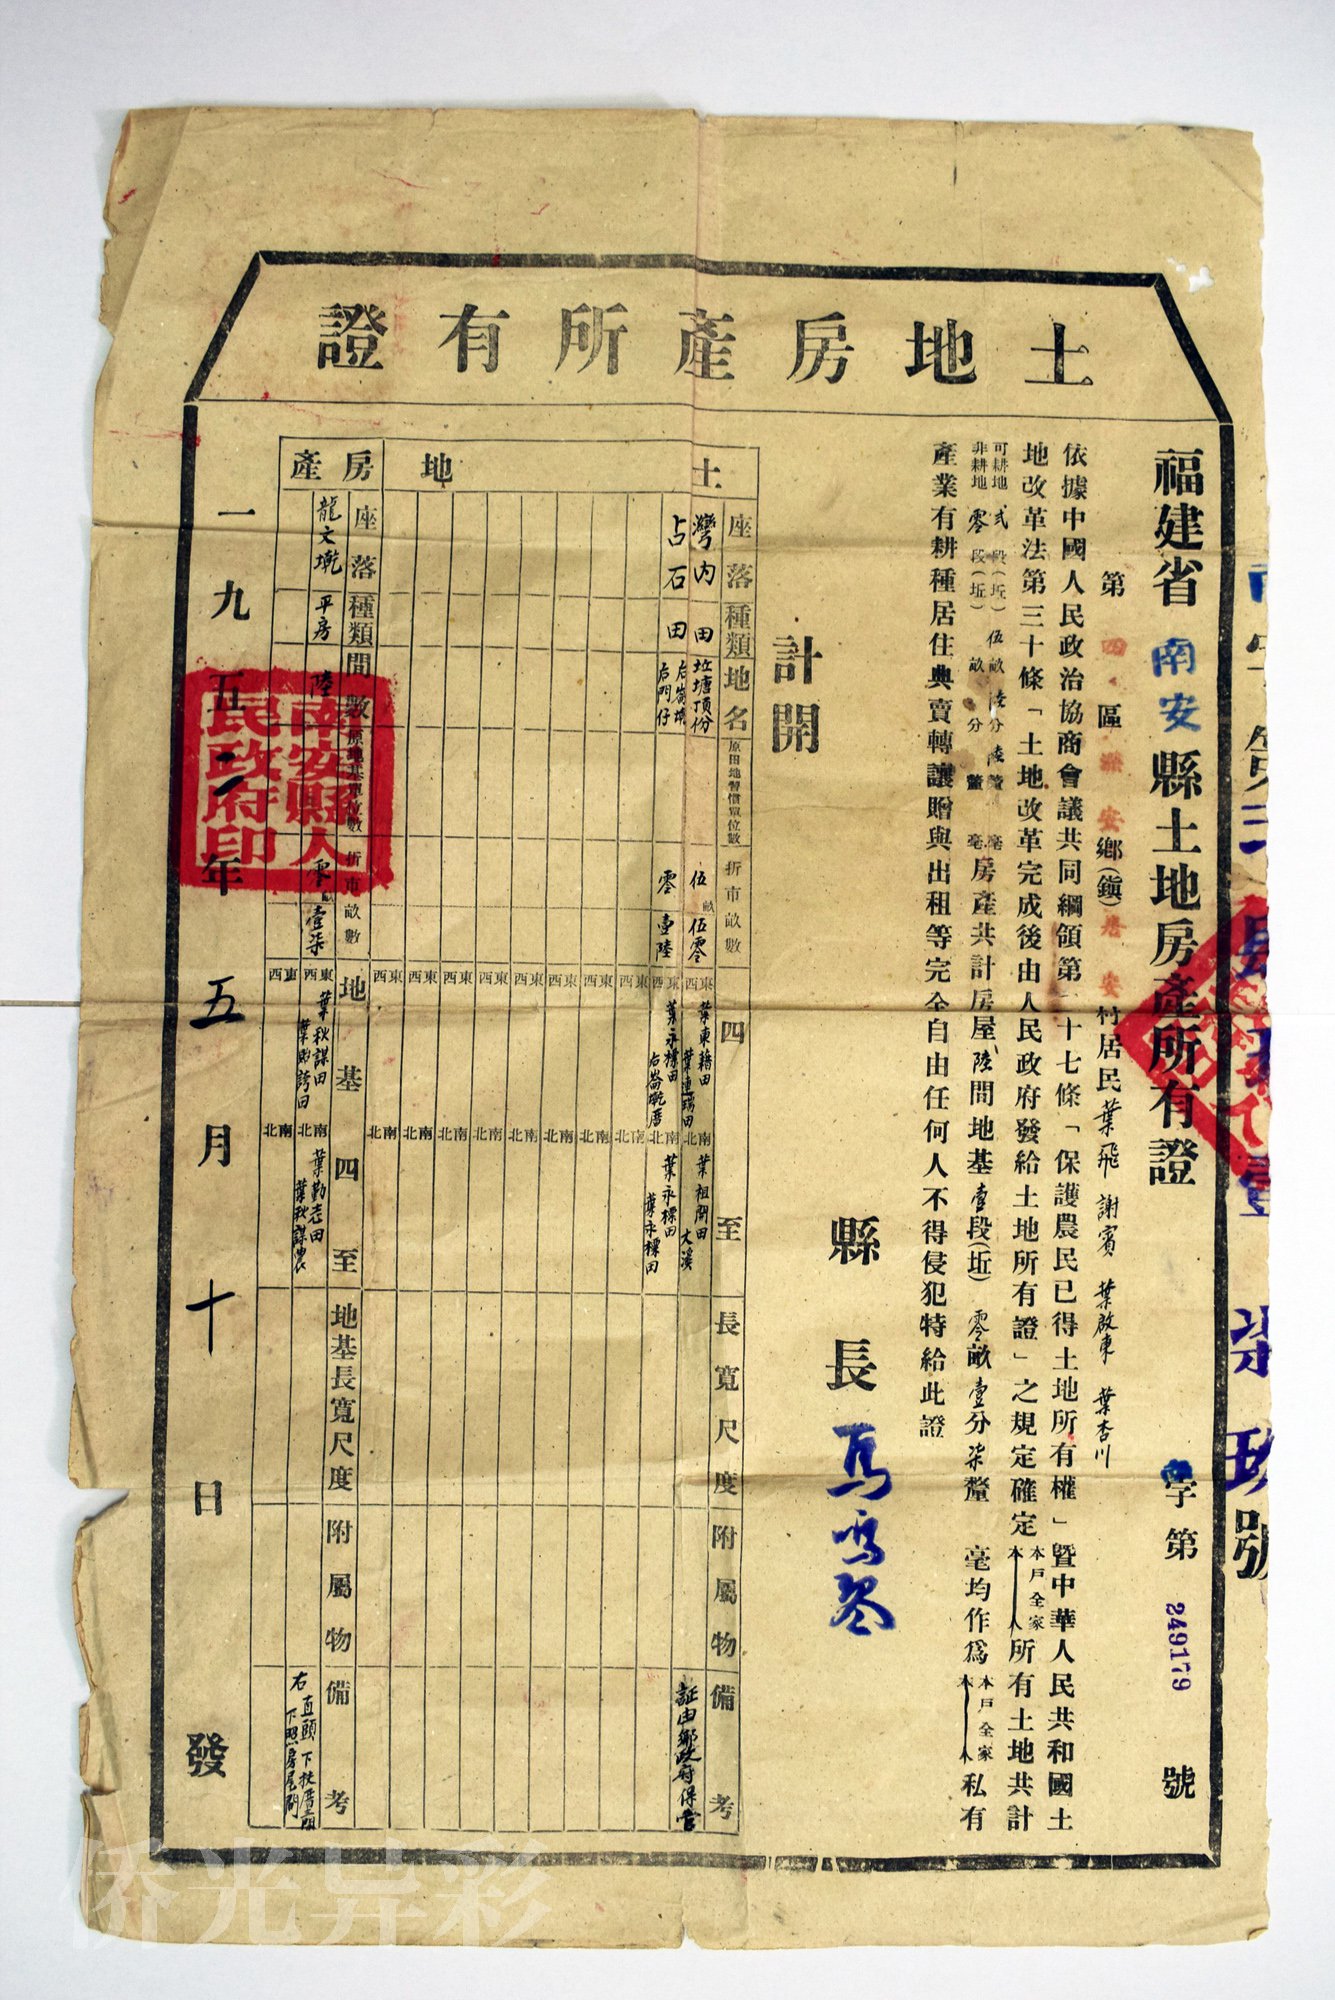 土地房產所有證
福建省南安縣土地房產所有證 字第249179號
第四區 安鄉(鎮) 安村居民葉飛 謝賓 葉啟東 葉杏川
依據中國人民政治協商會議共同綱領第二十七條「保護農民已得土地所有權」暨中華人民共和國土
地改革法第三十條「土地改革完成後由人民政府發給土地所有證」之規定確定本戶全家本人所有土地共計
可耕地弍段(坵)伍畝陸分陸釐 毫
非耕地零段(坵) 畝 分 釐 毫
房產共計房屋陸間地基壹段(坵)零畝壹分柒釐 毫均作為本戶全家本人私有
產業有耕種居住典賣轉讓贈與出租等完全自由任何人不得侵犯特給此證
計開
縣長
土地
座落 種類 地名 原田地習慣單位數 折市畝數 四至 長寬尺度 附屬物 備考
灣內 田 垃塘頂份 伍畝伍零 東葉東籍田 西葉連瑞田 南葉祖開田 北大溪 証由鄉政府保管
占石 田 后門仔 零 壹陸 東葉永標田 西 南葉永標田 北葉永標田
東西 南北
東西 南北
東西 南北
東西 南北
東西 南北
東西 南北
東西 南北
東西 南北
房產
座落 種類 間數 原地基單位數 折市畝數 地基四至 地基長寬尺度 附屬物 備考
龍文墘 平房 陸 零畝壹柒 東葉秋謀田 西 南葉勤志田 北
東西 南北
一九五二年五月十日發
南安縣人民政府印
號
侨光异彩